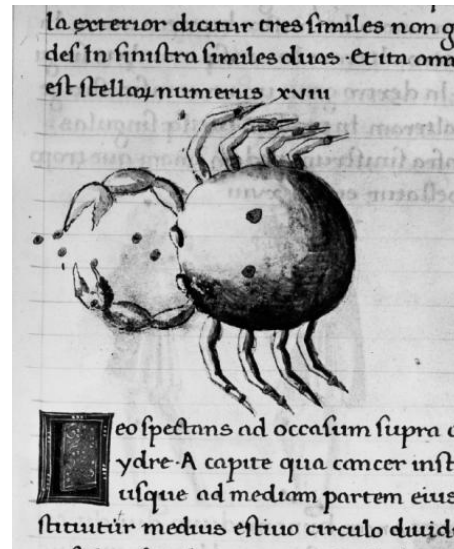 la exterior dicitur tres similes non g
des In sinistra similes duas · Et ita om
est stellaꝝ numerus xviii
Leo spectans ad occasum supra c
ydre · A capite qua cancer inst
usque ad mediam partem eius
stituitur medius estiuo circulo diuid